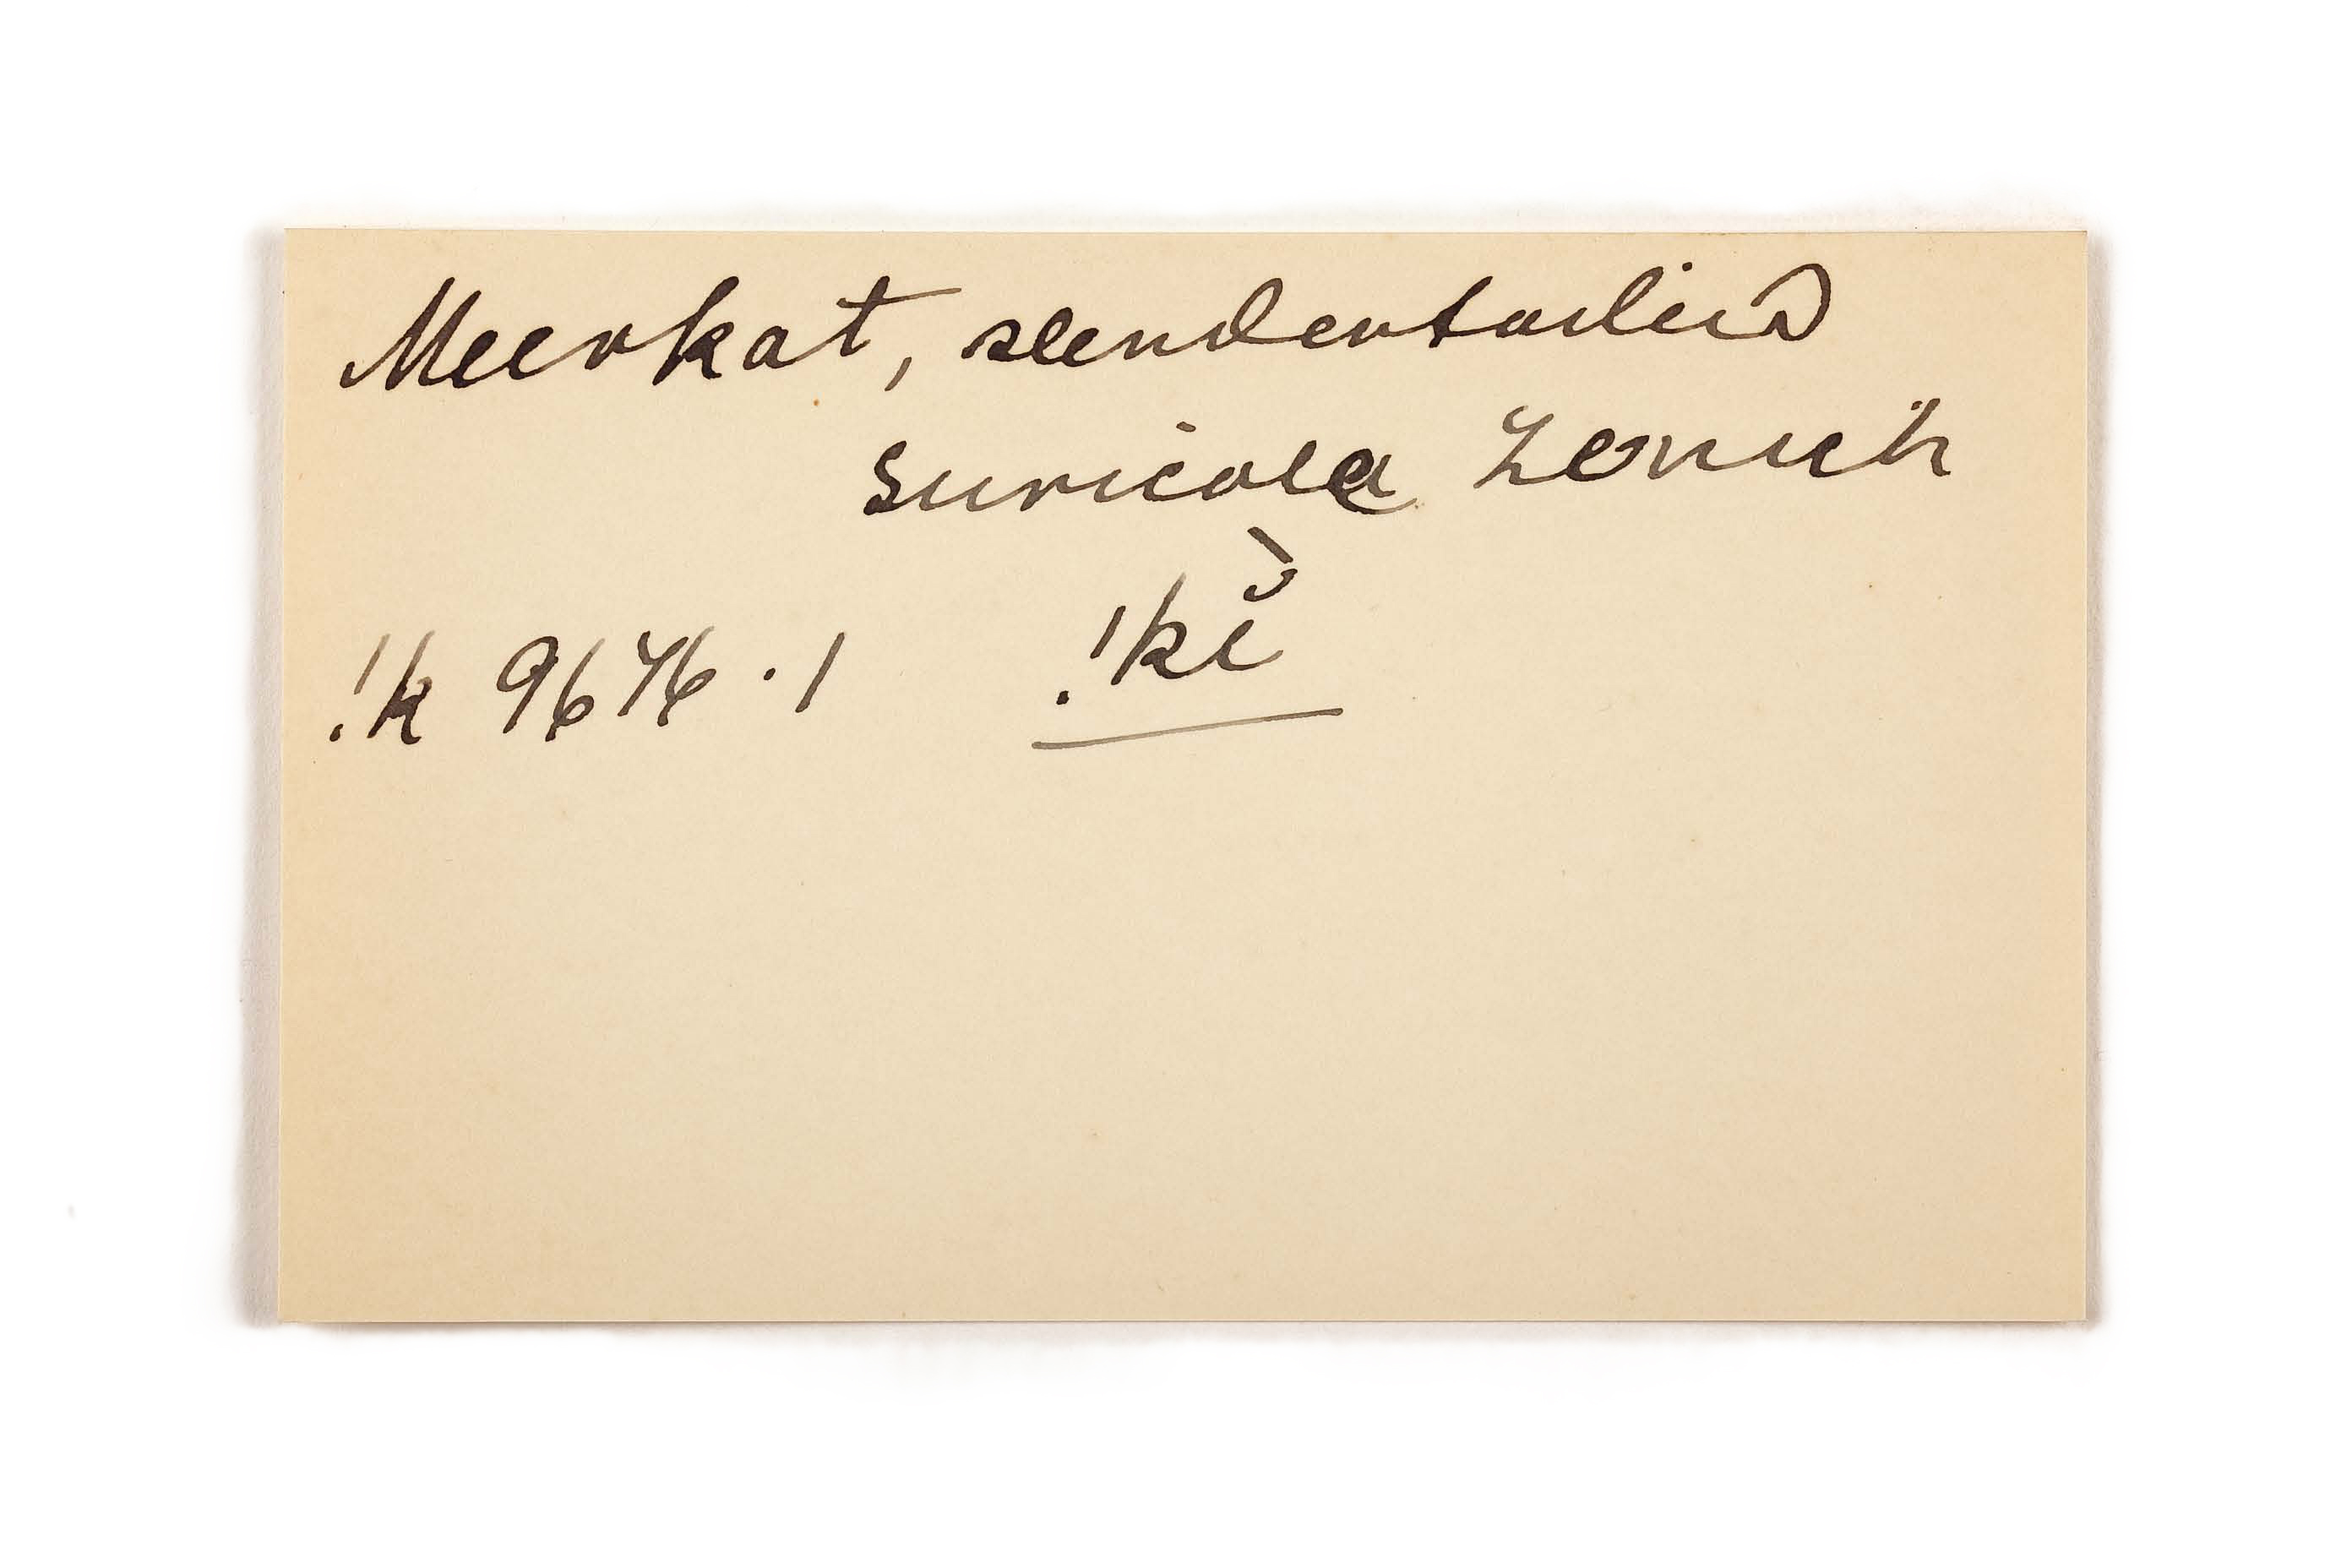 Meerkat, slendertailed
Suricata Zenick
!k 9676.1 !kĭ̀